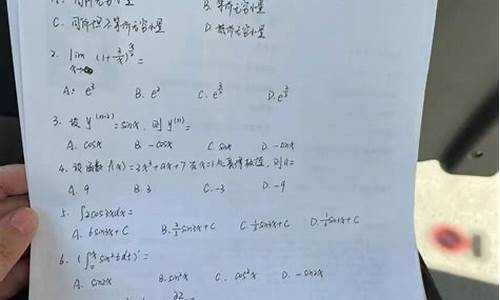 A. 同阶无穷小量 B. 等价无穷小量
C. 同阶但不等价无穷小量 D. 高阶无穷小量
2. lim (1+ )=
A. e³ B. e² C. e D. e
3. 设 y⁽ⁿ⁻²⁾=sinx, 则 y⁽ⁿ⁾=
A. cosx B. -cosx C. sinx D. -sinx
4. 设函数 f(x)=2x³+ax+7 在 x=1 处取得极值, 则 a=
A. 9 B. 3 C. -3 D. -9
5. ∫2cos3xdx=
A. 6sin3x+C B. 2/3sin3x+C C. 1/3sin3x+C D. 1/6sin3x+C
6. (∫₀ˣ sin²tdt)'=
A. sin2x B. sin²x C. cos²x D. -sin2x